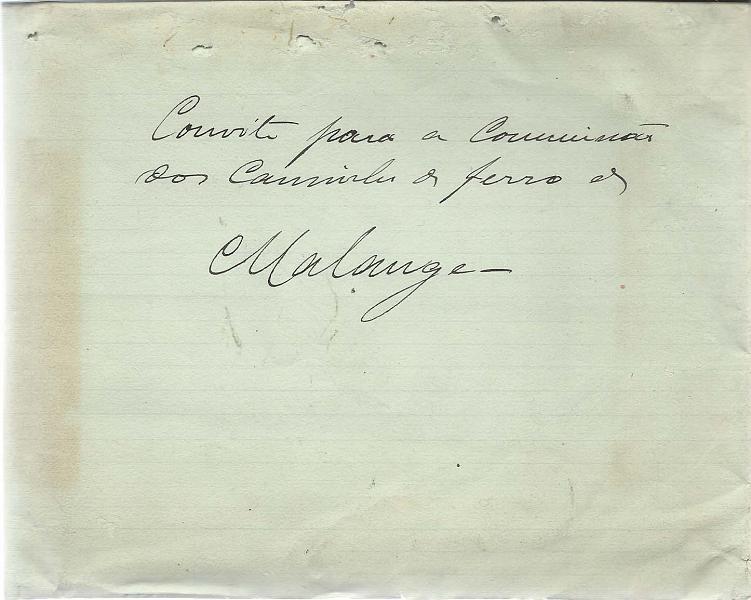 Convite para a Commissão
dos Caminhos de ferro de
Malange